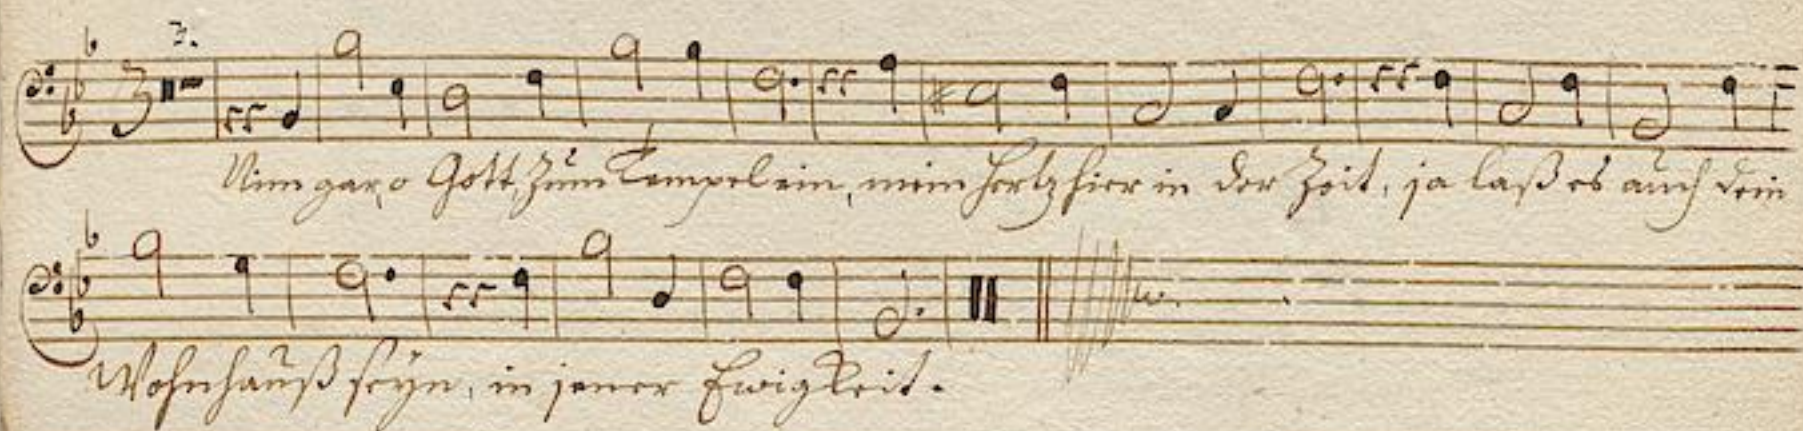 3.
Nim gar, o Gott, zum Tempel ein, mein Hertz hier in der Zeit, ja laß es auch dein
Wohnhauß seÿn, in jener Ewigkeit.